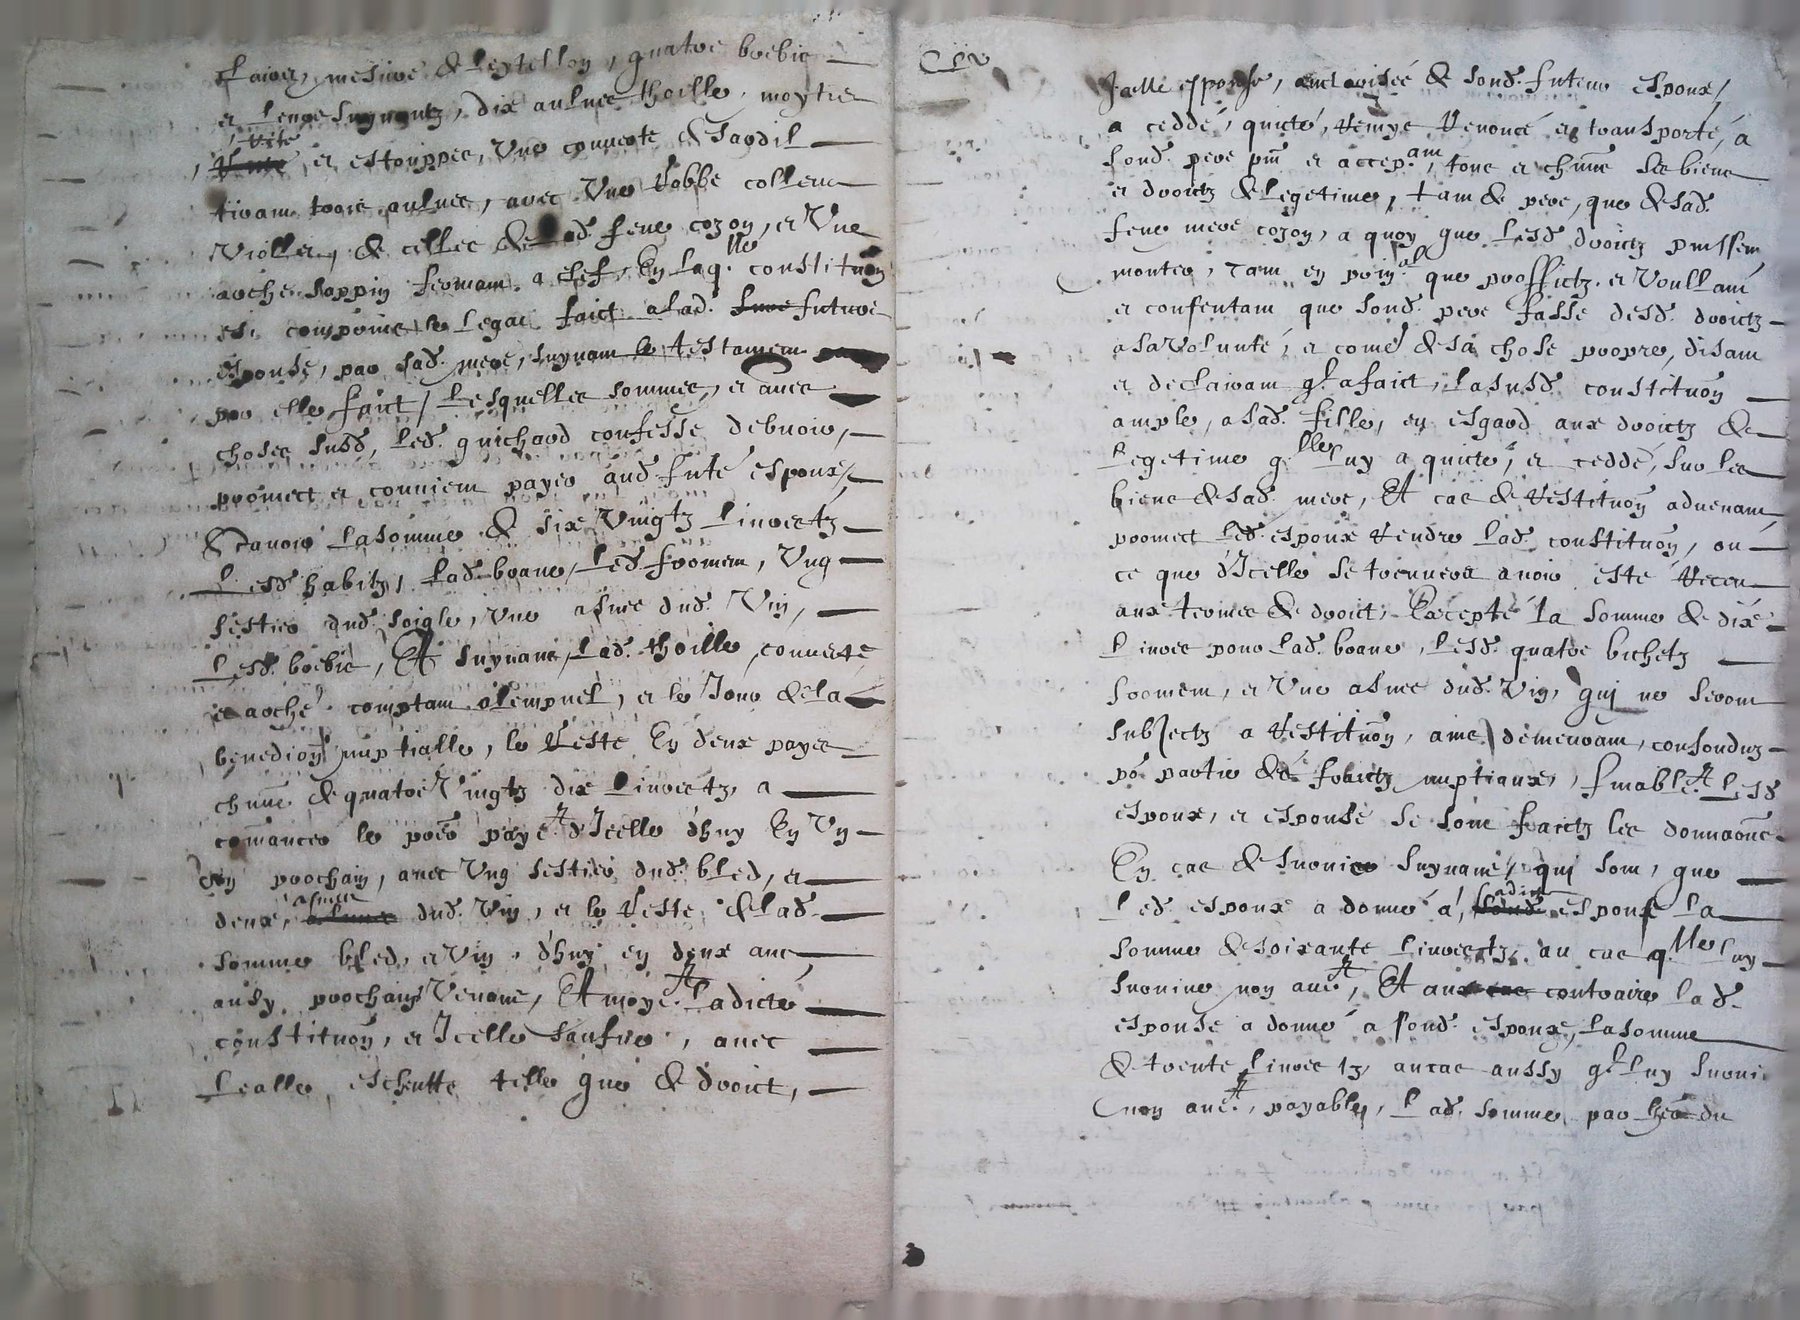 claire, mesure de leytellon, quatre brebis
et suyvantz, dix aulnes thoille, moytier
rite
et estouppes, une couverte de sardil
tirant trois aulnes, avec une robbe colleur
viollet, de celles de lad. feue cozon, et une
arche sappin fermant a clef, En laq.lle constituōn
est comprins le legat faict a lad. future
espouse, par sad. mere, suyvant le testament
par elle faict / Lesquelles sommes, et aultres
choses susd., led. guichard confesse debvoir,
promect et convient payer aud. futé espoux,
Scavoir la somme de six vingtz livres tz
Lesd. habitz, lad. vane, led. froment, ung
sestier dud. soigle, une asnee dud. vin,
Lesd. brebis, Et suyvant, lad. thoille, couverte
et arche comptant a l'empnel, et le jour de la
benediōn nuptialle, le reste En deux payes
chūne de quatre vingtz dix livres tz, a
comancer le prēe paye d'Icelle d'huy En Un
an prochain, avec ung sestier dud. bled, et
asnees
deux, dud. vin, et le reste de lad.
somme bled, et vin, d'huy en deux ans,
ausy prochains venant, Et moyēt ladicte
constituōn, et Icelle saufve, avec
Lealle eschutte telle que de droict,
Jaclle espouse, auctorisée de sond. futeur espoux,
a ceddé, quicté, remys renoncé et transporté, a
sond. pere pnt et accep.ant, tous et chūns ses biens
et droictz de legetime, tant de pere, que de sad.
feue mere cozon, a quoy que lesd. droictz puissent
monter, tant en prin.al que proffictz, et voullant
et consentant que sond. pere fasse desd. droictz
a sa volunté, et comē de sa chose propre, disant
et declairant q.l a faict, la susd. constituōn
ample, a sad. fille, en esgard aux droictz de
Legetime q.lle luy a quicté, et ceddé, sur les
biens de sad. mere, Et cas de restituōn advenant,
promect led. espoux rendre lad. constituōn, ou
ce que d'Icelle se treuvera avoir esté receu
aux termes de droict, Excepté la somme de dix
Livres pour lad. vane, lesd. quatre bichetz
froment, et une asnee dud. vin, qui ne seront
subjectz a restituōn, ains demeurant, confonduz
pō partie des fraictz nuptiaux, sīnablēt Lesd.
espoux, et espouse se sont faictz les donnaōns
En cas de survie suyvans, qui sont, que
ladite
Led. espoux a donné a, espouse la
somme de soixante livres tz, au cas q.lle luy
survive non aultrēt, Et au contraire lad.
espouse a donné a sond. espoux, la somme
de trente livres tz, au cas aussy q.l luy survive
non aultrēt, payables, lad. somme par les hers du